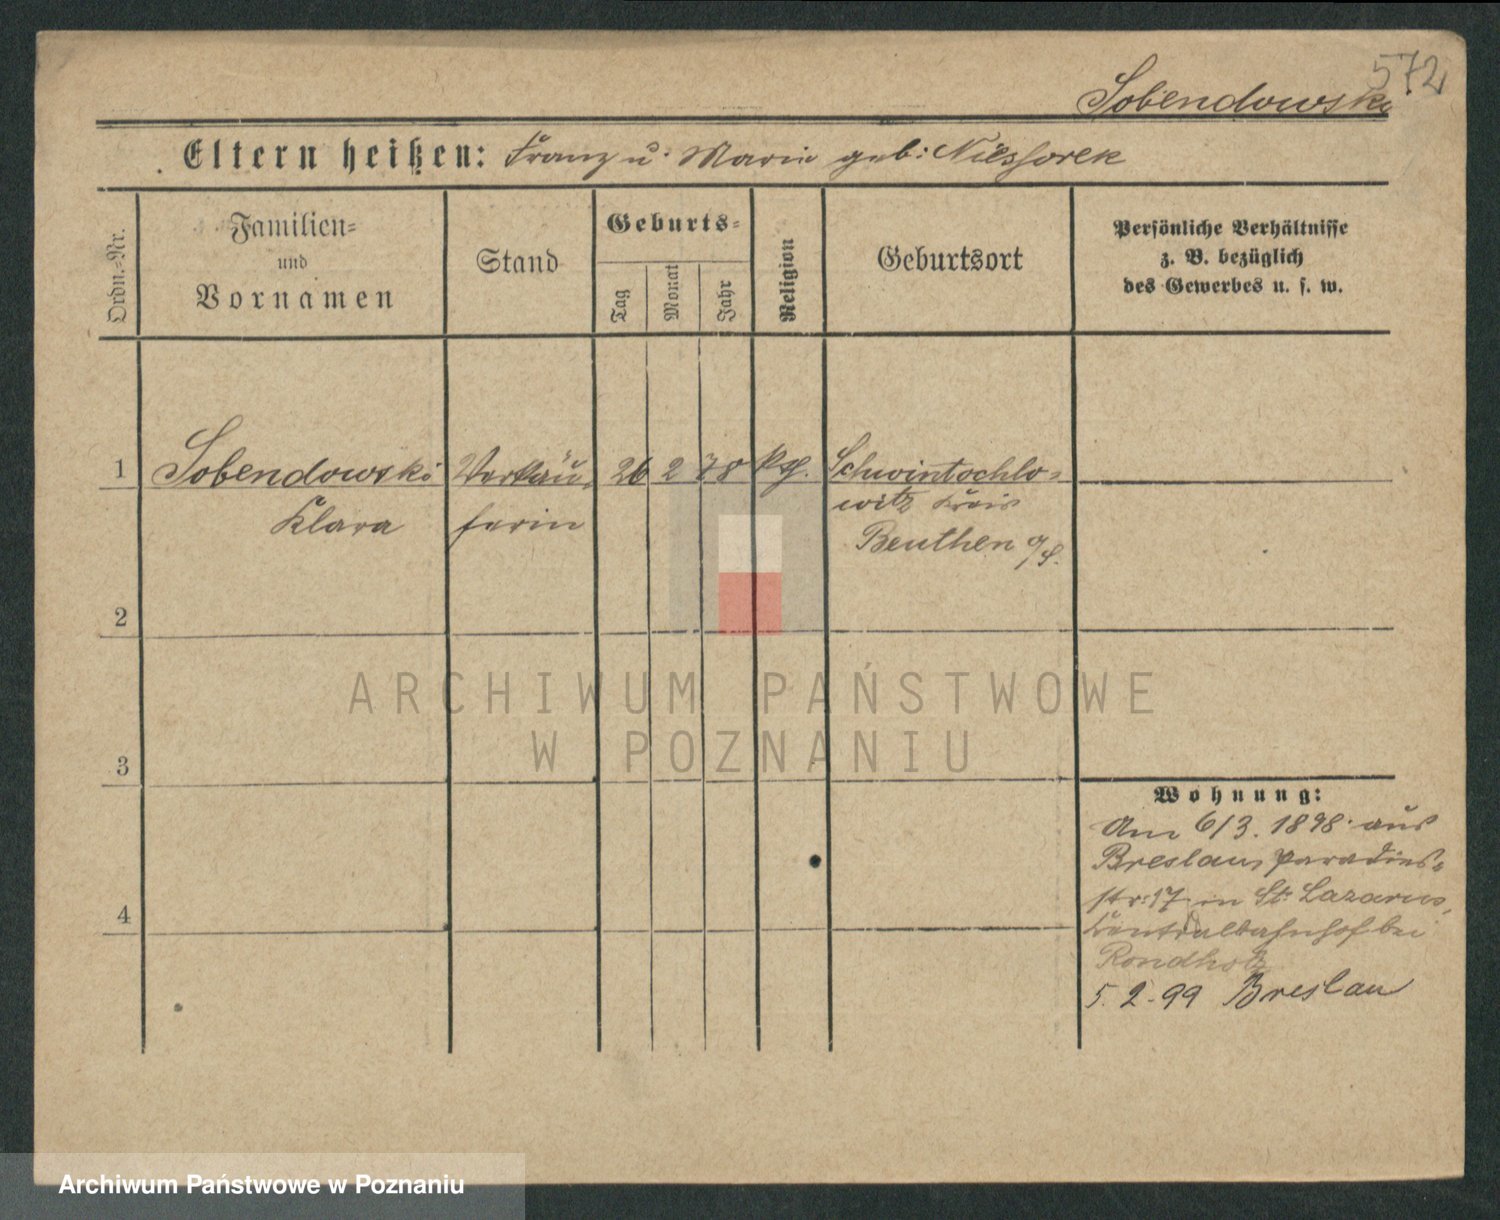 572
Sobendowski
Eltern heißen: Franz u. Marie geb: Niessorek
Ordn.-Nr.
Familien-
und
Vornamen
Stand
Geburts-
Tag
Monat
Jahr
Religion
Geburtsort
Persönliche Verhältnisse
z. B. bezüglich
des Gewerbes u. s. w.
1 Sobendowski Verkäu- 26 2 78 kth. Schwintochlo-
Klara ferin witz Kreis
Beuthen o/S.
2
ARCHIWUM PAŃSTWOWE
W POZNANIU
3
Wohnung:
Am 6/3. 1898. aus
Breslau, Paradies-
str: 17 in St. Lazarus,
Centralbahnhof bei
Rondholz
4
5. 2. 99 Breslau
Archiwum Państwowe w Poznaniu